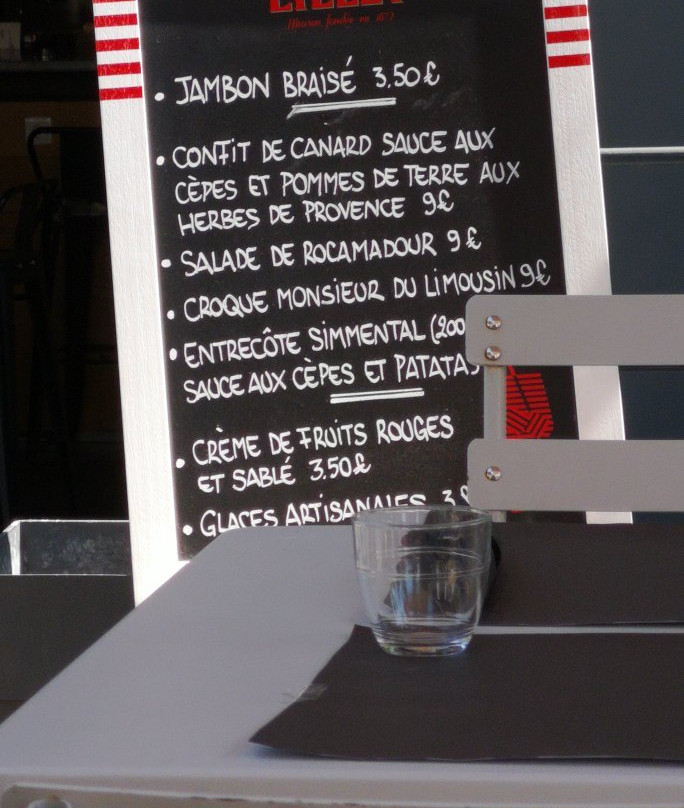 LILLET
Maison fondée en 1872
• JAMBON BRAISÉ 3,50£
• CONFIT DE CANARD SAUCE AUX
CÈPES ET POMMES DE TERRE AUX
HERBES DE PROVENCE 9£
• SALADE DE ROCAMADOUR 9£
• CROQUE MONSIEUR DU LIMOUSIN 9£
• ENTRECÔTE SIMMENTAL (200
SAUCE AUX CÈPES ET PATATAS
• CRÈME DE FRUITS ROUGES
ET SABLÉ 3.50£
• GLACES ARTISANALES 3£